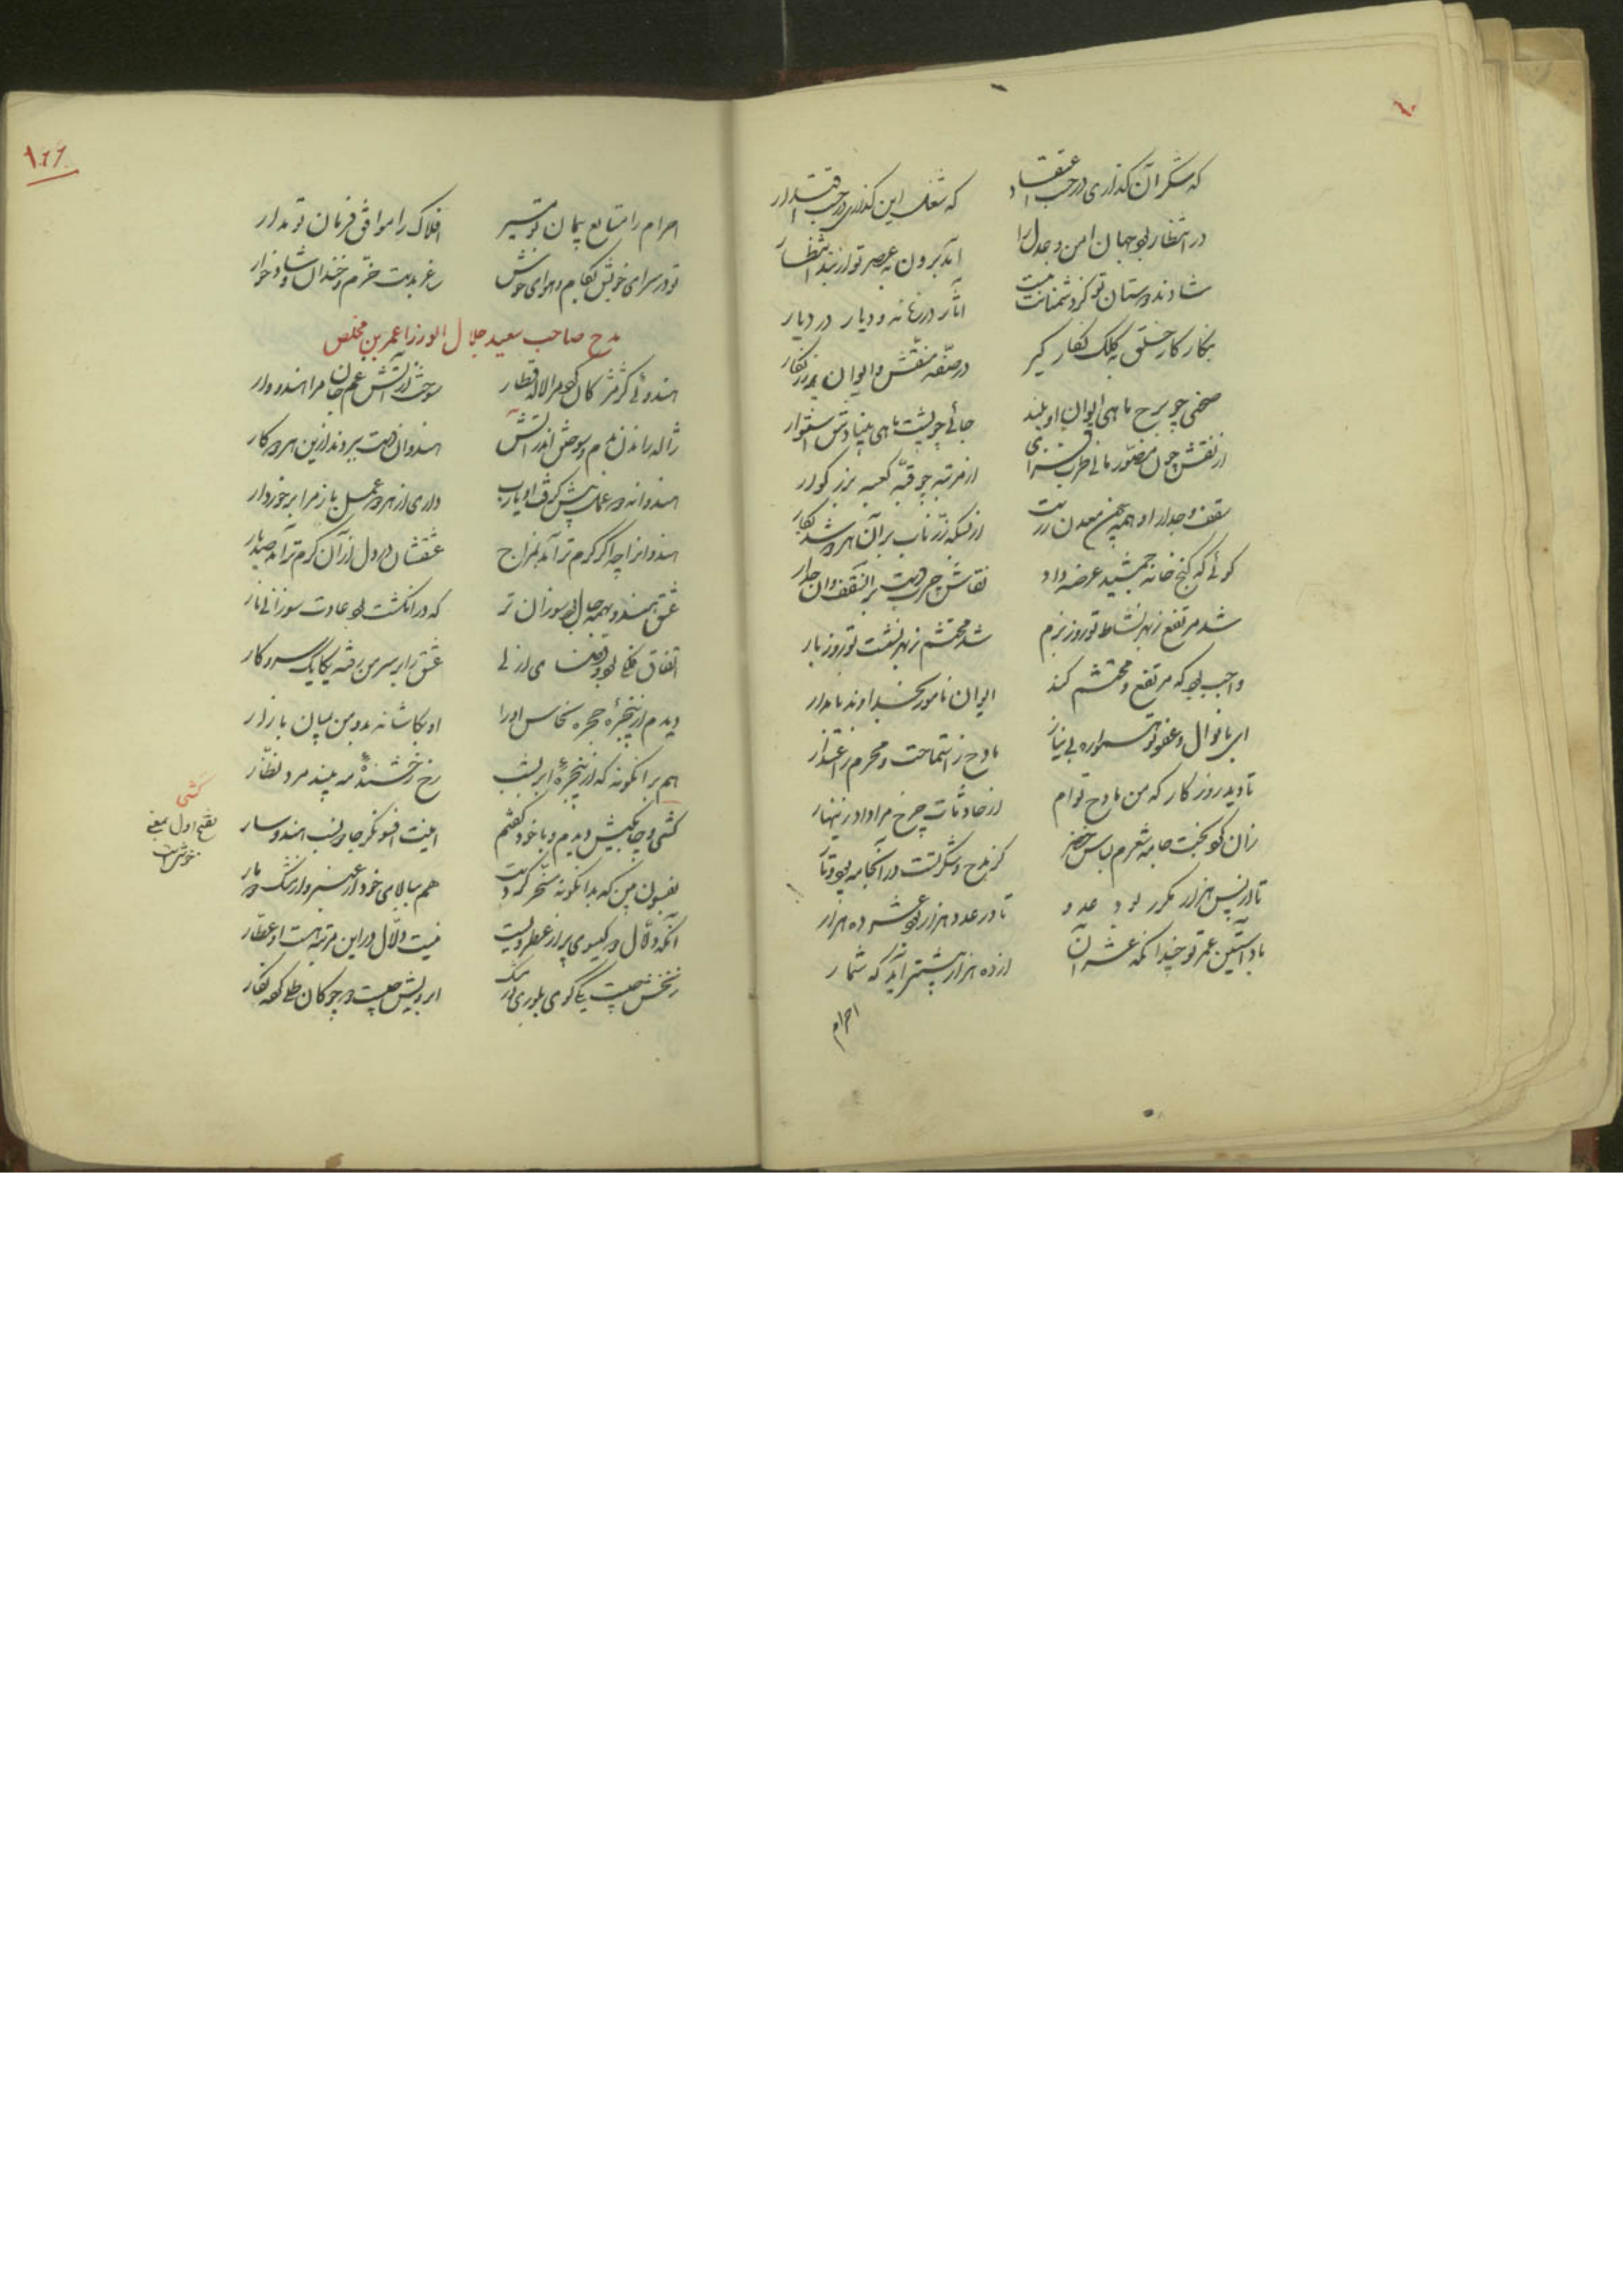 که شکر آن گذاری در حب اعتقاد که شغل این گذاری در حب اقتدار
در انتظار بود جهان امن و عدل را آمد برون به عصر تو از بند انتظار
شادند دوستان تو کز دشمنانت نیست آثار در زمانه و دیار در دیار
بنگار کار خلق به کلک نگار گیر در صفه منقش و ایوان پر نگار
صحنی چو برج ماهی ایوان او بلند جائی چو پشت ماهی بنیادش استوار
از نقش چون مصور مانی طرب فزای از مرتبه چو قبه کعبه بزرگوار
سقف و جدار او همه چون معدن زرست از بسکه زر ناب بر آن هر دو شد بکار
گوئی که گنج خانه جمشید عرضه داد نقاش چرب دست بر آن سقف و آن جدار
شد مرتفع ز بهر نشاط تو روز بزم شد محتشم ز بهر نشست تو روز بار
واجب بود که مرتفع و محتشم کند ایوان نامور بخداوند نامدار
ای با نوال و عفو تو همواره بی نیاز مادح ز استماحت و مجرم ز اعتذار
تا دید روزگار که من مادح توام از حادثات چرخ مرا داد زینهار
زان کو بخت جامه شعرم لباس خضر کز مدح و شکر تست در آن جامه پود و تار
تا در پس هزار مکرر بود عدد تا در عدد هزار بود عشر ده هزار
باد آستین عمر تو چندانکه عشر آن از ده هزار بیشتر آید که شمار
اجرام
اجرام را متابع پیمان تو مسیر افلاک را موافق فرمان تو مدار
تو در سرای خویش بکام و هوای خوش ساغر بدست خرم و خندان و شادخوار
مدح صاحب سعید جلال الوزرا عمر بن مخلص
هندوئی کز مژگان کرد مرا لاله قطار سوخت از آتش غم جان مرا هندووار
ژاله راندن نم و سوختن اندر آتش هندوان دست ببردند ازین هر دو کار
هندوانه دو عمل پیش گرفت او یارب داری از هر دو عمل باز مرا برخوردار
هندوانرا چه اگر گرم تر آمد بمزاج عشقشان در دل از آن گرم تر آمد صد بار
عشق هندو بهمه حال بود سوزان تر که در انگشت بود عادت سوزانی نار
اتفاق فلکی بود و قضای ازلی عشق را بر سر من رفته یکایک سر و کار
دیدم از پنجرهٔ حجره نخاس او را او بکاشانه بد و من بمیان بازار
هم بر آنگونه که از پنجرهٔ ابر بشب رخ رخشندهٔ مه بیند مرد نظار
کشی و چابکیش دیدم و با خود گفتم اینت افسونگر جادو لب هندوسار
آنکه دلال در گیسوی پر از عطر ویست نیست دلال در این مرتبه هست او عطار
زنخش چیست یکی گوی بلوری در چنگ ابرویش چیست دو چوگان طلی کرده نگار
کشی
بفتح اول بمعنی
خوش است